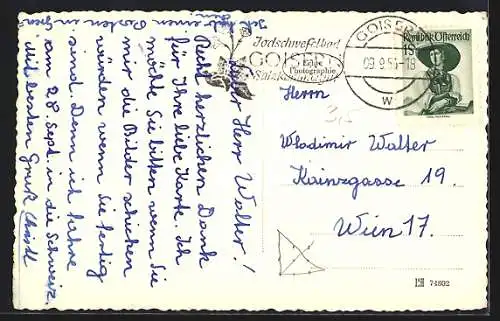 Lieber Herr Walter!
Recht herzlichen Dank
für Ihre liebe Karte. Ich
möchte Sie bitten wenn Sie
mir die Bilder schicken
würden wenn Sie fertig
sind. Denn ich fahre
am 28. Sept in die Schweiz.
mit besten Gruß Christl
Jodschwefelbad
GOISERN
Salzkammergut
Echte
Photographie
GOISERN
09.9.53-18
w
Republik Österreich
1S
Herrn
Wladimir Walter
Kainzgasse 19.
Wien 17.
74802